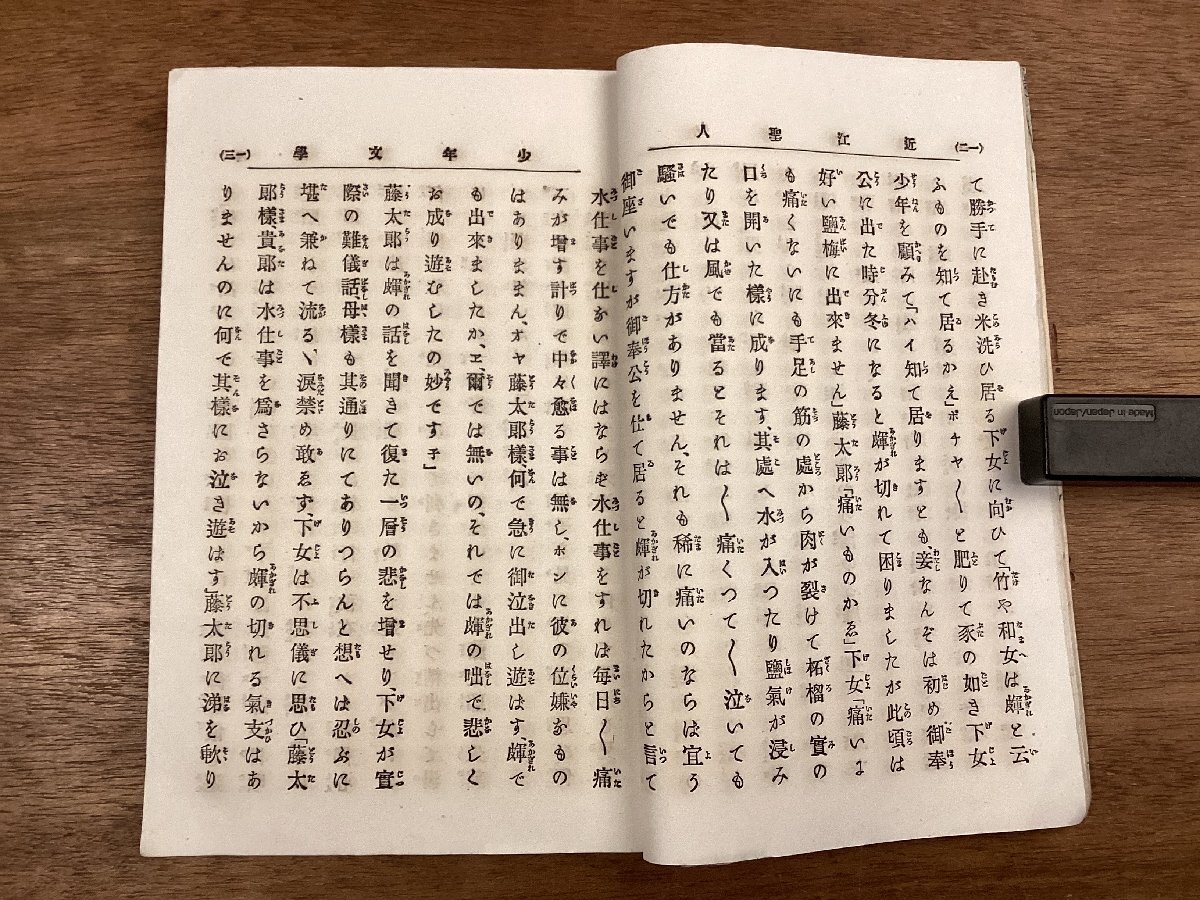 近江聖人
(一二)
て勝手に赴き米洗ひ居る下女に向ひて「竹や和女は皹と云
ふものを知て居るかえ」ポチャ〱と肥りて豕の如き下女
少年を顧みて「ハイ知て居りますとも妾なんぞは初め御奉
公に出た時分冬になると皹が切れて困りましたが此頃は
好い鹽梅に出來ません」藤太郎「痛いものかゑ」下女「痛いよ
も痛くないにも手足の筋の處から肉が裂けて柘榴の實の
口を開いた樣に成ります、其處へ水が入つたり鹽氣が浸み
たり又は風でも當るとそれは〱痛くつて〱泣いても
騷いでも仕方がありません、それも稀に痛いのならは宜う
御座いますが御奉公を仕て居ると皹が切れたからと言て
少年文學
(一三)
水仕事を仕ない譯にはならず水仕事をすれは每日〱痛
みが增す計りで中々愈る事は無し、ホンに彼の位嫌なもの
はありません、オヤ藤太郎樣、何で急に御泣出し遊はす、皹で
も出來ましたか、エ、爾では無いの、それでは皹の咄で悲しく
お成り遊むしたの妙ですネ」
藤太郎は皹の話を聞きて復た一層の悲を增せり、下女が實
際の難儀話、母樣も其通りにてありつらんと想へは忍ぶに
堪へ兼ねて流るヽ淚禁め敢ゑず、下女は不思儀に思ひ「藤太
郎樣、貴郎は水仕事を爲さらないから皹の切れる氣支はあ
りませんのに何で其樣にお泣き遊はす」藤太郎に涕を歔り
Made in Japan/Japon